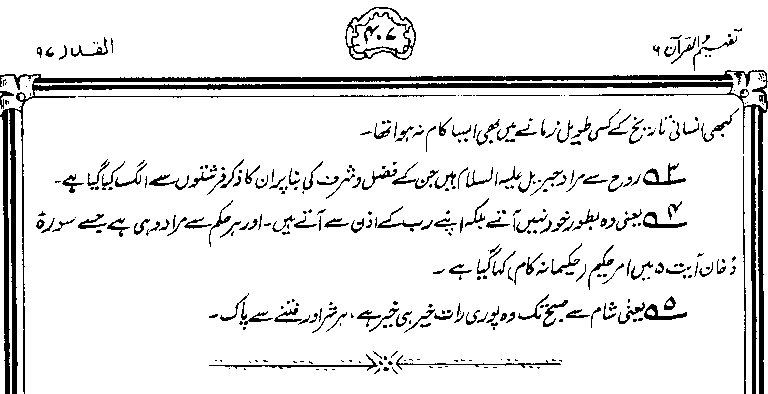 تفہیم القرآن ۶
۴۰۷
القدر ۹۷
کبھی انسانی تاریخ کے کسی طویل زمانے میں بھی ایسا کام نہ ہوا تھا۔
۳؎ روح سے مراد جبریل علیہ السلام ہیں جن کے فضل و شرف کی بنا پر ان کا ذکر فرشتوں سے الگ کیا گیا ہے۔
۴؎ یعنی وہ بطور خود نہیں آتے بلکہ اپنے رب کے اذن سے آتے ہیں۔ اور ہر حکم سے مراد وہی ہے جسے سورۂ
دُخان آیت ۵ میں امرِ حکیم (حکیمانہ کام) کہا گیا ہے۔
۵؎ یعنی شام سے صبح تک وہ پوری رات خیر ہی خیر ہے، ہر شر اور فتنے سے پاک۔